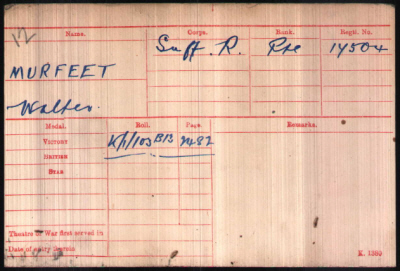 12
Name. Corps. Rank. Regtl. No.
Suff. R. Pte 14504
MURFEET
Walter.
Medal. Roll. Page. Remarks.
Victory K/1/103 B13 2482
British
Star
Theatre of War first served in
Date of entry therein
K. 1380